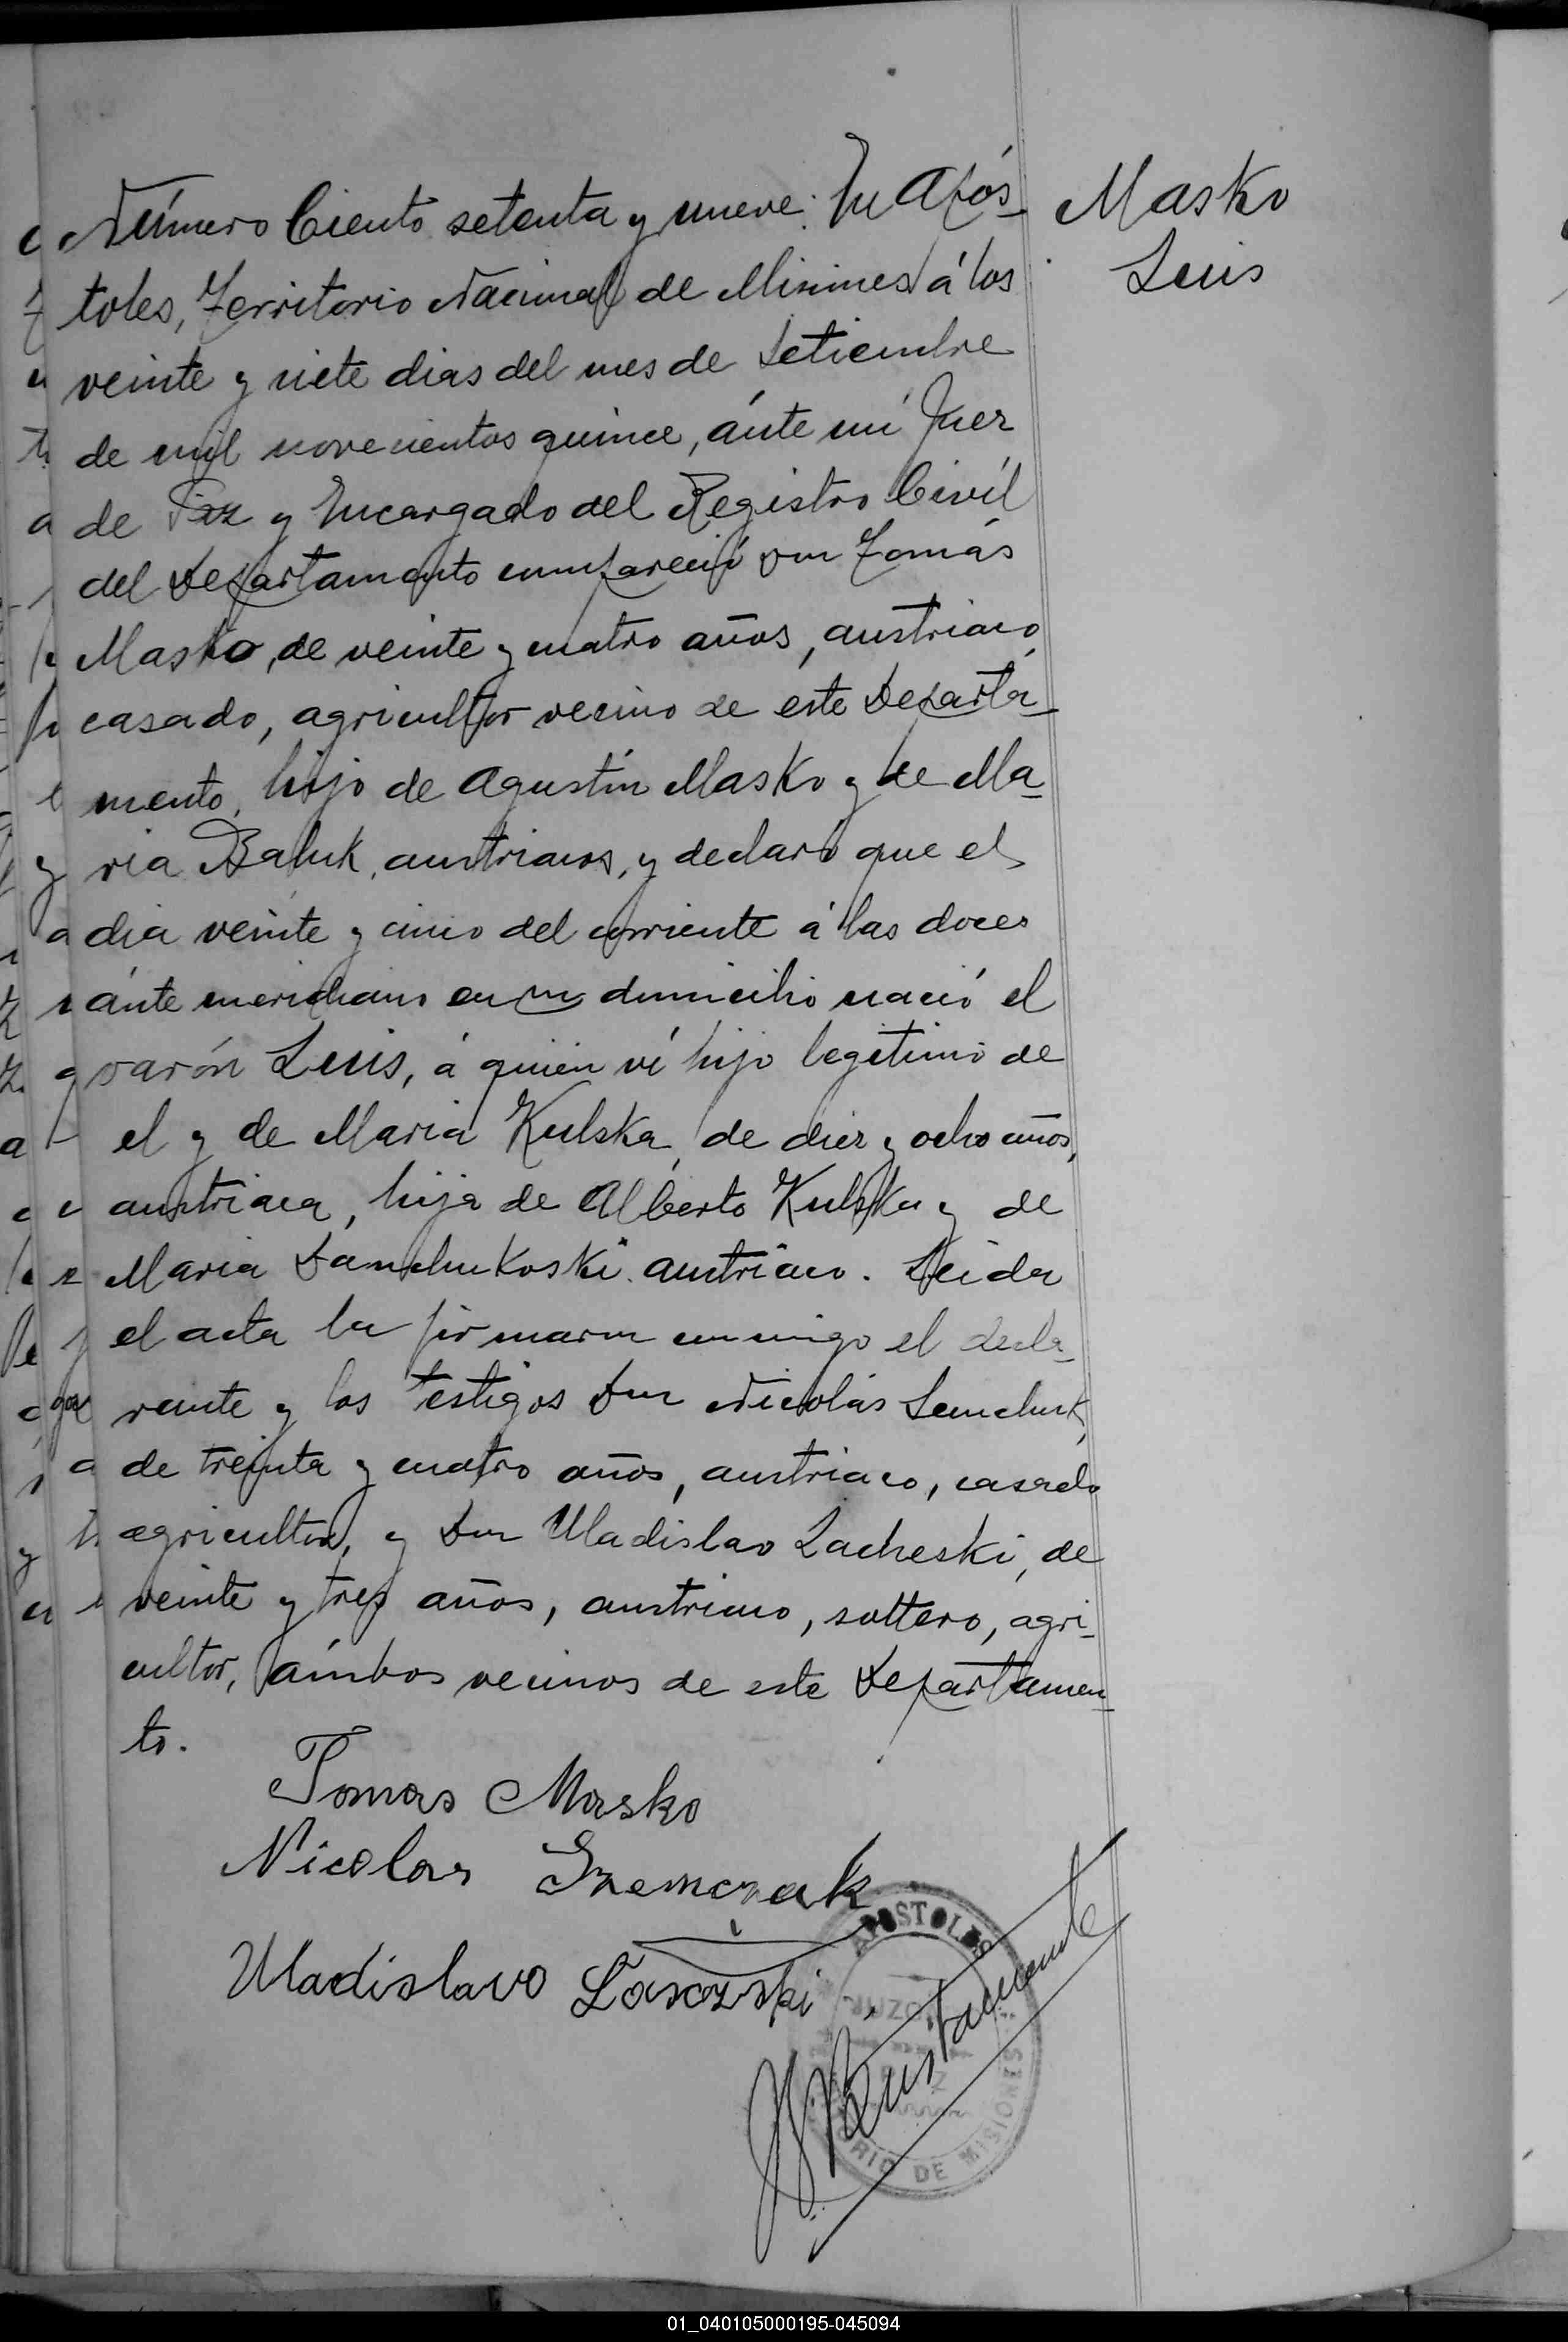 Número Ciento setenta y nueve: En Após-
toles, Territorio Nacional de Misiones á los
veinte y siete dias del mes de Setiembre
de mil novecientos quince, ánte mí Juez
de Paz y Encargado del Registro Civíl
del Departamento compareció don Tomás
Masko, de veinte y cuatro años, austriaco,
casado, agricultor vecino de este Departa-
mento, hijo de Agustín Masko y de Ma-
ria Baluk, austriacos, y declaró que el
dia veinte y cinco del corriente á las doces
ánte meridiano en su domicilio nació el
varón Luis, á quien ví hijo legitimo de
el y de Maria Kulska, de diez y ocho años,
austriaca, hija de Alberto Kulska y de
Maria Danchukoski austriaco. Leida
el acta la firmaron conmigo el decla-
rante y los testigos Don Nicolás Semchuk,
de treinta y cuatro años, austriaco, casado
agricultor, y Don Uladislao Lacheski, de
veinte y tres años, austriaco, soltero, agri-
cultor, ámbos vecinos de este Departamen-
to.
Masko
Luis
Tomas Masko
Nicolas Szemczuk
Uladislavo Lasozski
Bustamante
APOSTOLES
JUZG
ORIO DE MISIONES
01_040105000195-045094